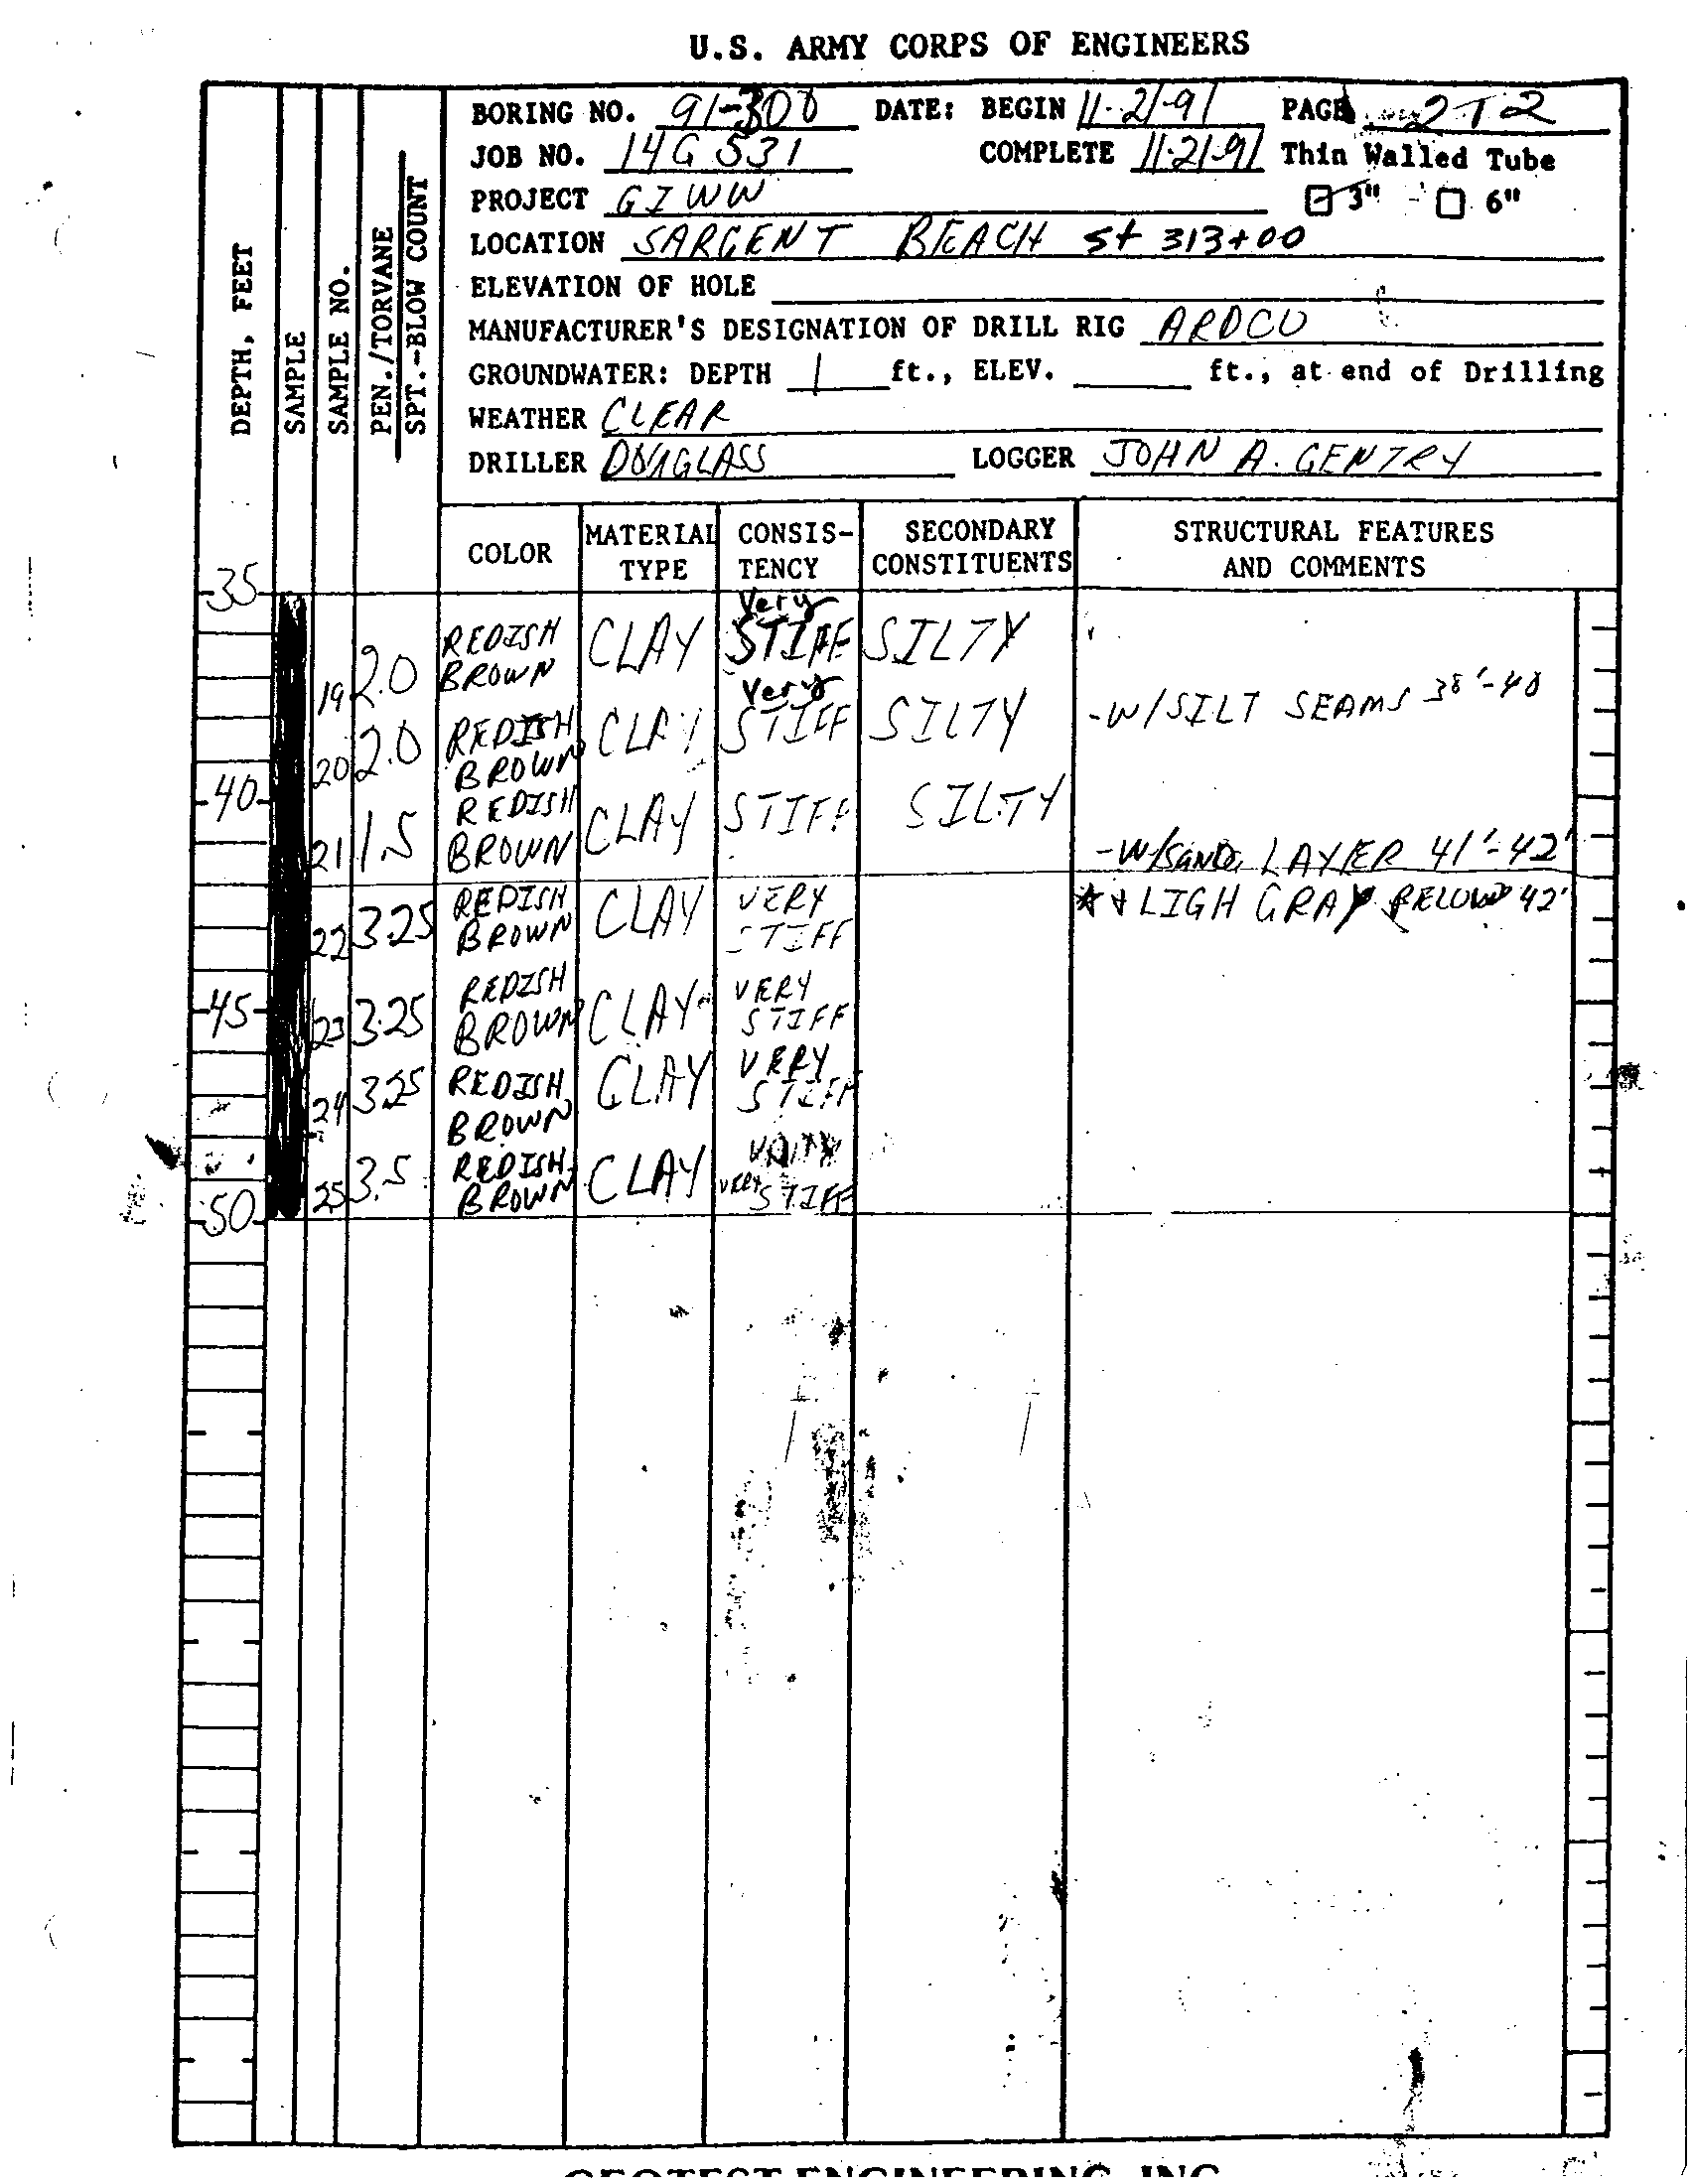 U.S. ARMY CORPS OF ENGINEERS
BORING NO. 91-300 DATE: BEGIN 11-21-91 PAGE 2 T 2
JOB NO. 14G 531 COMPLETE 11-21-91 Thin Walled Tube
PROJECT GIWW 3" 6"
LOCATION SARGENT BEACH St 313+00
ELEVATION OF HOLE
MANUFACTURER'S DESIGNATION OF DRILL RIG ARDCO
GROUNDWATER: DEPTH 1 ft., ELEV. ft., at end of Drilling
WEATHER CLEAR
DRILLER DOUGLASS LOGGER JOHN A. GENTRY
DEPTH, FEET
SAMPLE
SAMPLE NO.
PEN./TORVANE
SPT.-BLOW COUNT
COLOR MATERIAL TYPE CONSIS-TENCY SECONDARY CONSTITUENTS STRUCTURAL FEATURES AND COMMENTS
35
19 2.0 REDISH BROWN CLAY Very STIFF SILTY
20 2.0 REDISH BROWN CLAY Very STIFF SILTY -W/SILT SEAMS 38'-40
40
21 1.5 REDISH BROWN CLAY STIFF SILTY -W/SAND LAYER 41'-42'
22 3.25 REDISH BROWN CLAY VERY STIFF & LIGH GRAY BELOW 42'
45
23 3.25 REDISH BROWN CLAY VERY STIFF
24 3.25 REDISH BROWN CLAY VERY STIFF
25 3.5 REDISH BROWN CLAY VERY STIFF
50
GEOTEST ENGINEERING, INC.